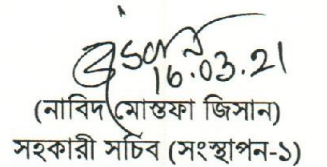 16.03.21
(নাবিদ মোস্তফা জিসান)
সহকারী সচিব (সংস্থাপন-১)